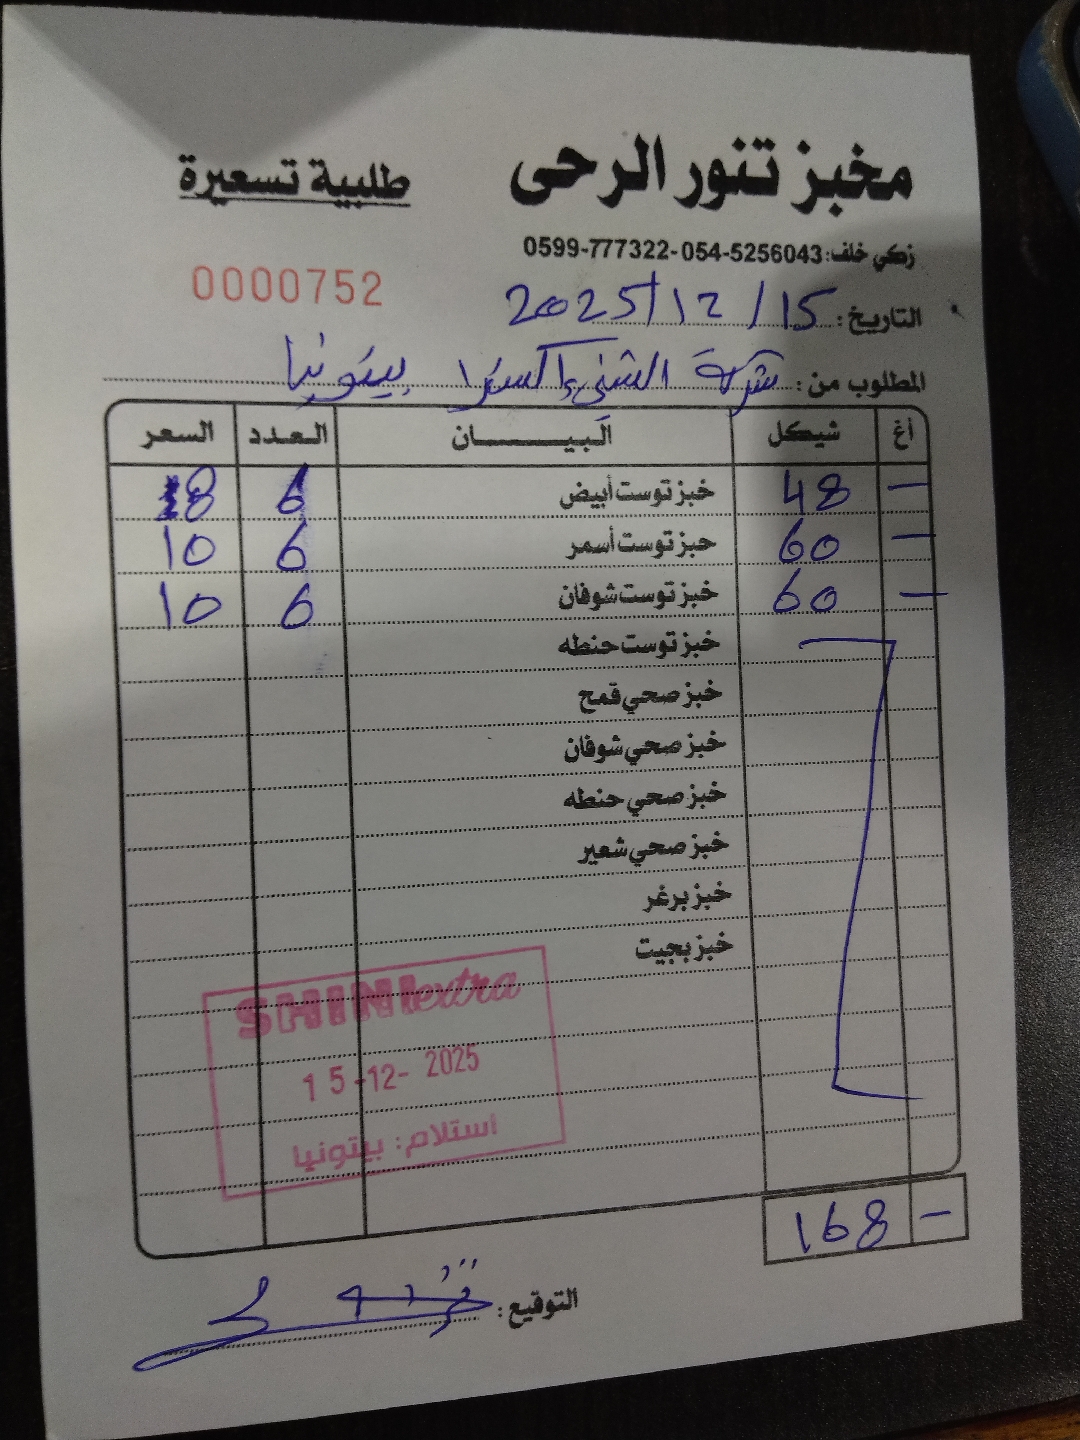 مخبز تنور الرحى
طلبية تسعيرة
زكي خلف: 054-5256043-0599-777322
0000752
التاريخ: 15/12/2025
المطلوب من: شركة الشني إكسترا بيتونيا
أغ شيكل البيـــــــان العدد السعر
— 48 خبز توست أبيض 6 8
— 60 خبز توست أسمر 6 10
— 60 خبز توست شوفان 6 10
خبز توست حنطه
خبز صحي قمح
خبز صحي شوفان
خبز صحي حنطه
خبز صحي شعير
خبز برغر
خبز بجيت
SHINI extra
15-12-2025
استلام: بيتونيا
— 168
التوقيع: